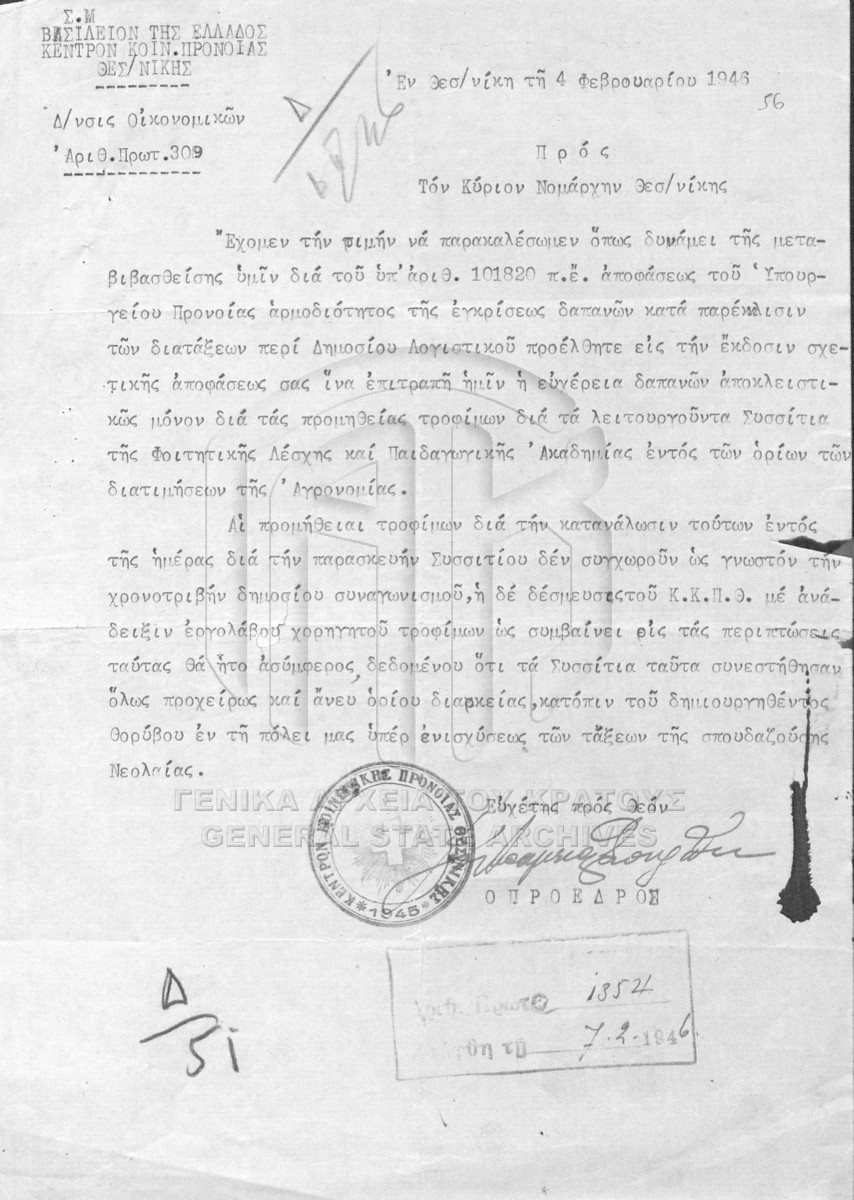 Σ.Μ
ΒΑΣΙΛΕΙΟΝ ΤΗΣ ΕΛΛΑΔΟΣ
ΚΕΝΤΡΟΝ ΚΟΙΝ.ΠΡΟΝΟΙΑΣ
ΘΕΣ/ΝΙΚΗΣ
Δ/νσις Οἰκονομικῶν
Ἀριθ.Πρωτ.309
Ἐν Θεσ/νίκη τῆ 4 Φεβρουαρίου 1946
56
Δ
Πρός
Τόν Κύριον Νομάρχην Θεσ/νίκης
Ἔχομεν τήν τιμήν νά παρακαλέσωμεν ὅπως δυνάμει τῆς μετα-
βιβασθείσης ὑμῖν διά τοῦ ὑπ'ἀριθ. 101820 π.ἔ. ἀποφάσεως τοῦ Ὑπουρ-
γείου Προνοίας ἁρμοδιότητος τῆς ἐγκρίσεως δαπανῶν κατά παρέκλισιν
τῶν διατάξεων περί Δημοσίου Λογιστικοῦ προέλθητε εἰς τήν ἔκδοσιν σχε-
τικῆς ἀποφάσεως σας ἵνα ἐπιτραπῆ ἡμῖν ἡ εὐχέρεια δαπανῶν ἀποκλειστι-
κῶς μόνον διά τάς προμηθείας τροφίμων διά τά λειτουργοῦντα Συσσίτια
τῆς Φοιτητικῆς Λέσχης καί Παιδαγωγικῆς Ἀκαδημίας ἐντός τῶν ὁρίων τῶν
διατιμήσεων τῆς Ἀγρονομίας.
Αἱ προμήθειαι τροφίμων διά τήν κατανάλωσιν τούτων ἐντός
τῆς ἡμέρας διά τήν παρασκευήν Συσσιτίου δέν συγχωροῦν ὡς γνωστόν τήν
χρονοτριβήν δημοσίου συναγωνισμοῦ,ἡ δέ δέσμευσις τοῦ Κ.Κ.Π.Θ. μέ ἀνά-
δειξιν ἐργολάβου χορηγητοῦ τροφίμων ὡς συμβαίνει εἰς τάς περιπτώσεις
ταύτας θά ἦτο ἀσύμφερος,δεδομένου ὅτι τά Συσσίτια ταῦτα συνεστήθησαν
ὅλως προχείρως καί ἄνευ ὁρίου διαρκείας,κατόπιν τοῦ δημιουργηθέντος
θορύβου ἐν τῆ πόλει μας ὑπέρ ἐνισχύσεως τῶν τάξεων τῆς σπουδαζούσης
Νεολαίας.
ΓΕΝΙΚΑ ΑΡΧΕΙΑ ΤΟΥ ΚΡΑΤΟΥΣ
GENERAL STATE ARCHIVES
Εὐχέτης πρός Θεόν
Ο ΠΡΟΕΔΡΟΣ
ΚΕΝΤΡΟΝ ΚΟΙΝΩΝΙΚΗΣ ΠΡΟΝΟΙΑΣ ΘΕΣ/ΝΙΚΗΣ
*1945*
1354
7-2-1946.
Δ
51